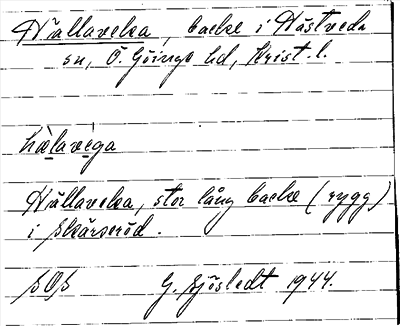 Hällaveka, backe i Hästveda
sn, Ö. Göinge hd, Krist. l.
hælavega
Hällaveka, stor lång backe (rygg)
i Skärseröd.
SOS G. Sjöstedt 1944.